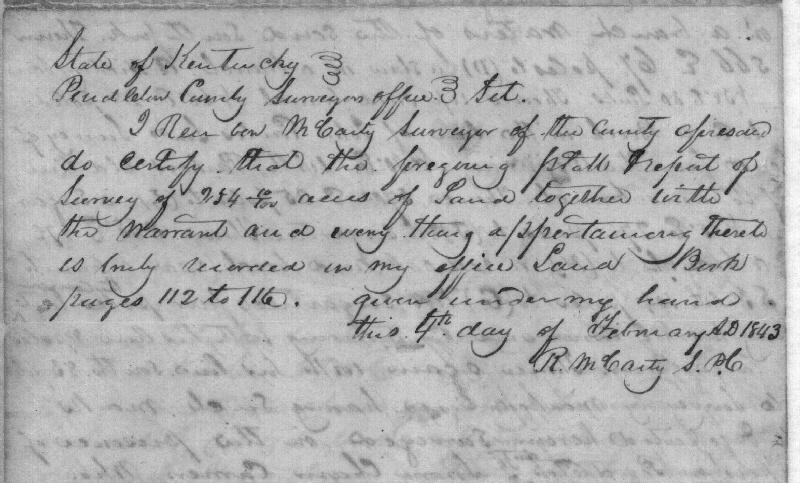 State of Kentucky
Pendleton County Surveyors office Sct.
I Reuben McCarty Surveyor of the County aforesaid
do certify that the foregoing platt & repot of
Survey of 254 acres of Land together with
the warrant and every thing appertaining thereto
is truly recorded in my office Land Book
pages 112 to 116. given under my hand
this 4th day of February A.D 1843
R. McCarty S. P.C